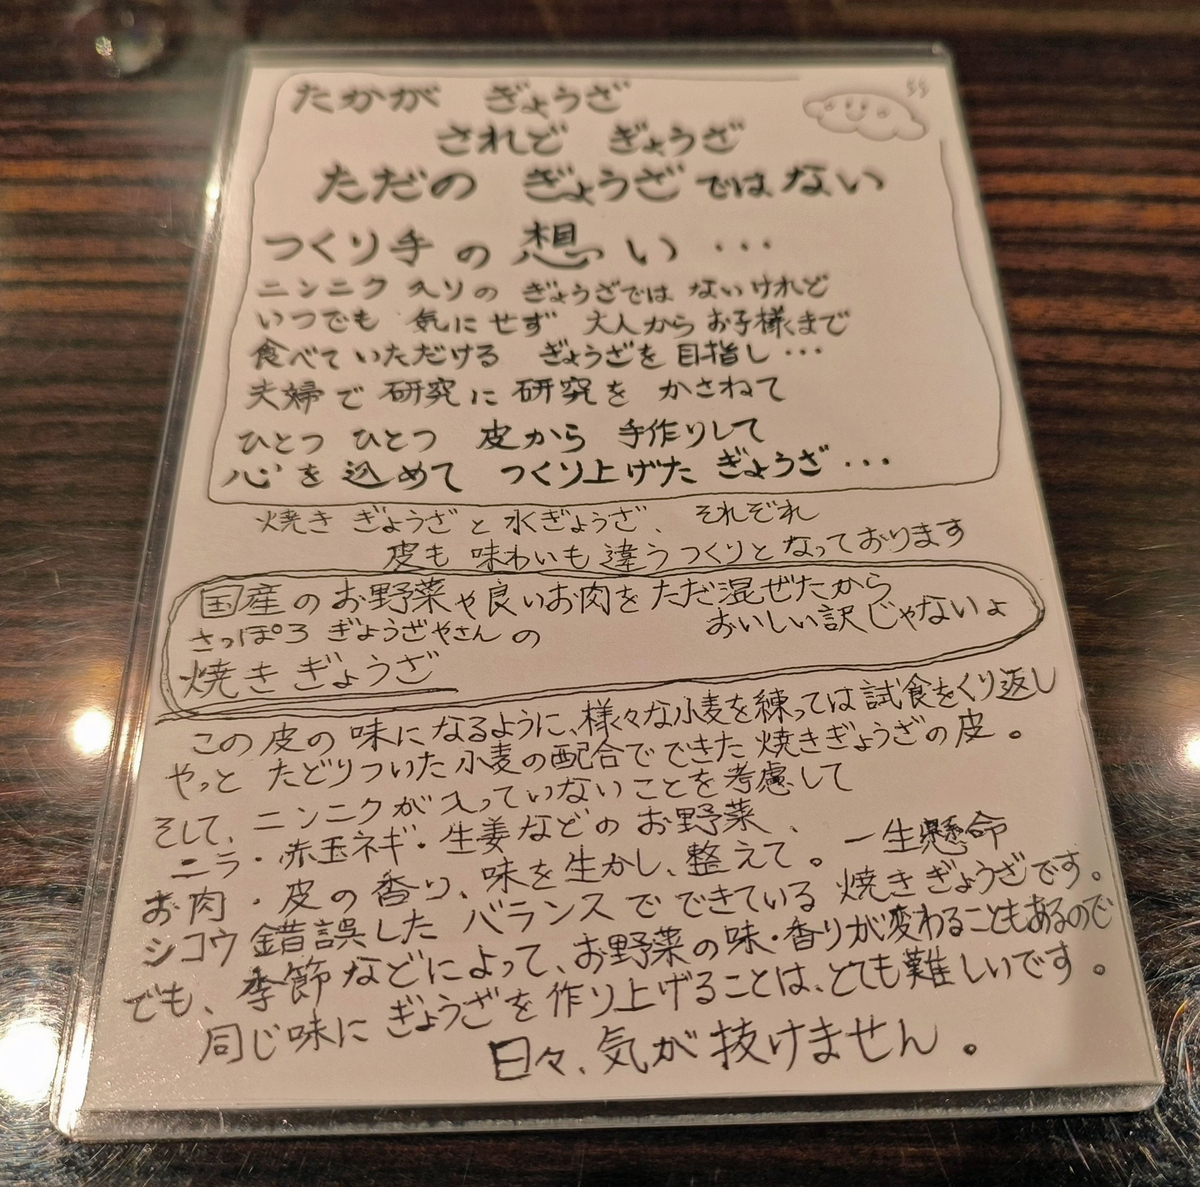 たかが ぎょうざ
されど ぎょうざ
ただの ぎょうざではない
つくり手の想い・・・
ニンニク入りの ぎょうざでは ないけれど
いつでも 気にせず 大人からお子様まで
食べていただける ぎょうざを目指し・・・
夫婦で研究に研究を かさねて
ひとつ ひとつ 皮から 手作りして
心を込めて つくり上げた ぎょうざ・・・
焼き ぎょうざと水ぎょうざ、それぞれ
皮も味わいも違うつくりとなっております
国産のお野菜や良いお肉をただ混ぜたから
おいしい訳じゃないょ
さっぽろ ぎょうざやさんの
焼きぎょうざ
この皮の味になるように、様々な小麦を練っては試食をくり返し
やっと たどりついた小麦の配合でできた焼きぎょうざの皮。
そして、ニンニクが入っていないことを考慮して
ニラ・赤玉ネギ・生姜などのお野菜、
お肉・皮の香り、味を生かし、整えて。一生懸命
シコウ錯誤したバランスでできている焼きぎょうざです。
でも、季節などによって、お野菜の味・香りが変わることもあるので
同じ味にぎょうざを作り上げることは、とても難しいです。
日々、気が抜けません。